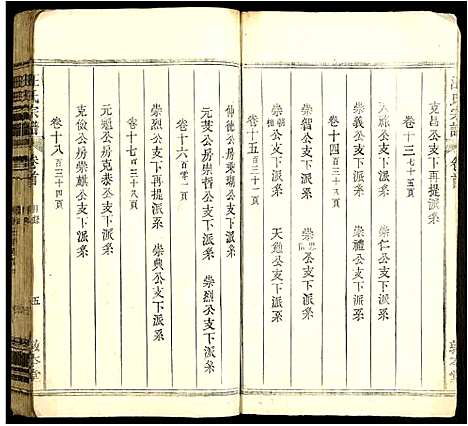 汪氏宗譜
卷首
克昌公支下再提派系
卷十三 七十五頁
崇仁公支下派系
崇義公支下派系 崇禮公支下派系
卷十四 百三十四頁
崇智公支下派系
崇 公支下派系 天 公支下派系
卷十五 百三十一頁
伸德公房東瑚公支下派系
元叟公房崇哲公支下派系 崇烈公支下派系
卷十六 百零一頁
崇烈公支下再提派系 崇典公支下派系
卷十七 百三十八頁
元 公房克泰公支下派系
克儉公房崇麒公支下派系
卷十八 百三十四頁
汪氏宗譜
卷首
五
敦本堂
敦本堂